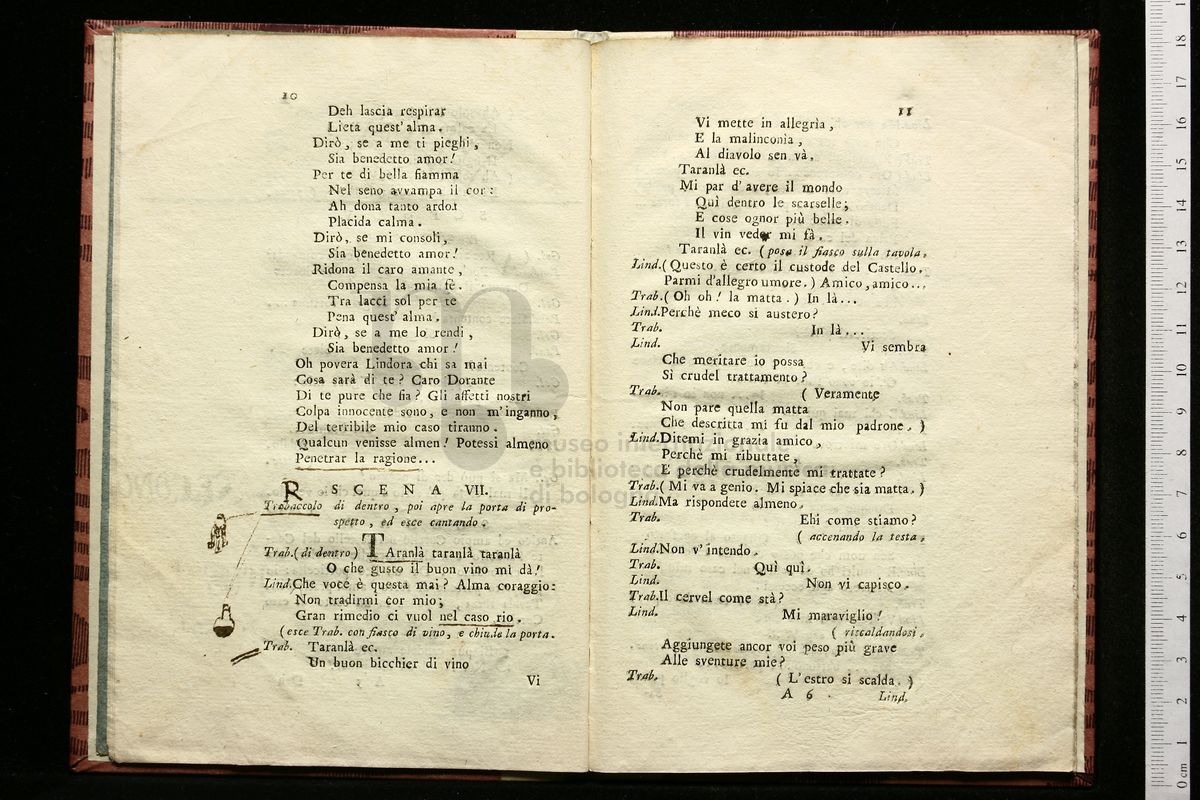 10
Deh lascia respirar
Lieta quest' alma.
Dirò, se a me ti pieghi,
Sia benedetto amor!
Per te di bella fiamma
Nel seno avvampa il cor:
Ah dona tanto ardor
Placida calma.
Dirò, se mi consoli,
Sia benedetto amor!
Ridona il caro amante,
Compensa la mia fè.
Tra lacci sol per te
Pena quest' alma.
Dirò, se a me lo rendi,
Sia benedetto amor!
Oh povera Lindora chi sa mai
Cosa sarà di te? Caro Dorante
Di te pure che fia? Gli affetti nostri
Colpa innocente sono, e non m'inganno,
Del terribile mio caso tiranno.
Qualcun venisse almen! Potessi almeno
Penetrar la ragione...
R
SCENA VII.
Trabaccolo di dentro, poi apre la porta di pro-
spetto, ed esce cantando.
Trab. (di dentro) TAranlà taranlà taranlà
O che gusto il buon vino mi dà!
Lind. Che voce è questa mai? Alma coraggio:
Non tradirmi cor mio;
Gran rimedio ci vuol nel caso rio.
(esce Trab. con fiasco di vino, e chiude la porta.
Trab. Taranlà ec.
Un buon bicchier di vino
Vi
11
Vi mette in allegrìa,
E la malinconìa,
Al diavolo sen và.
Taranlà ec.
Mi par d'avere il mondo
Quì dentro le scarselle;
E cose ognor più belle.
Il vin veder mi fà.
Taranlà ec. (posa il fiasco sulla tavola.
Lind. (Questo è certo il custode del Castello.
Parmi d'allegro umore.) Amico, amico...
Trab. (Oh oh! la matta.) In là...
Lind. Perchè meco sì austero?
Trab. In là...
Lind. Vi sembra
Che meritare io possa
Sì crudel trattamento?
Trab. (Veramente
Non pare quella matta
Che descritta mi fu dal mio padrone.)
Lind. Ditemi in grazia amico,
Perchè mi ributtate,
E perchè crudelmente mi trattate?
Trab. (Mi va a genio. Mi spiace che sia matta.)
Lind. Ma rispondete almeno.
Trab. Ehi come stiamo?
(accenando la testa.
Lind. Non v'intendo.
Trab. Quì quì.
Lind. Non vi capisco.
Trab. Il cervel come stà?
Lind. Mi maraviglio!
(riscaldandosi.
Aggiungete ancor voi peso più grave
Alle sventure mie?
Trab. (L'estro si scalda.)
A 6
Lind.
museo
e biblioteca
di bologna
0 cm 1 2 3 4 5 6 7 8 9 10 11 12 13 14 15 16 17 18